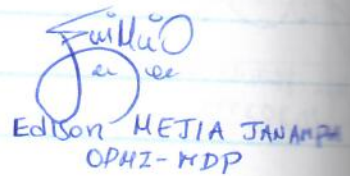 Edison MEJIA JANAMPA
OPMI-MDP